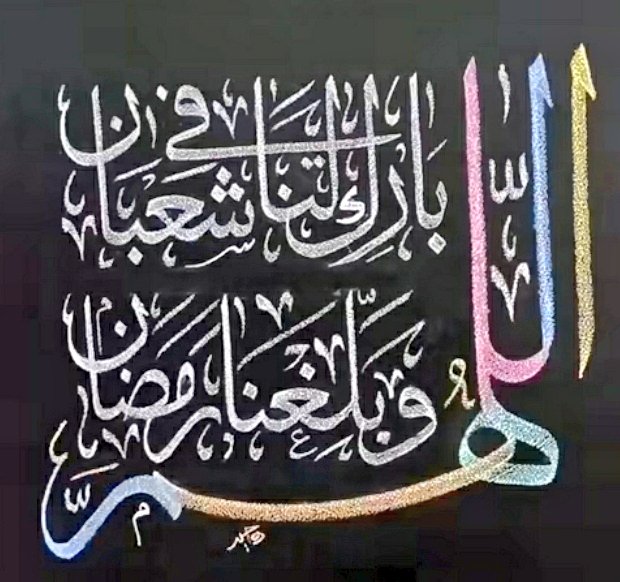 اللهم
بارك لنا في شعبان
وبلغنا رمضان